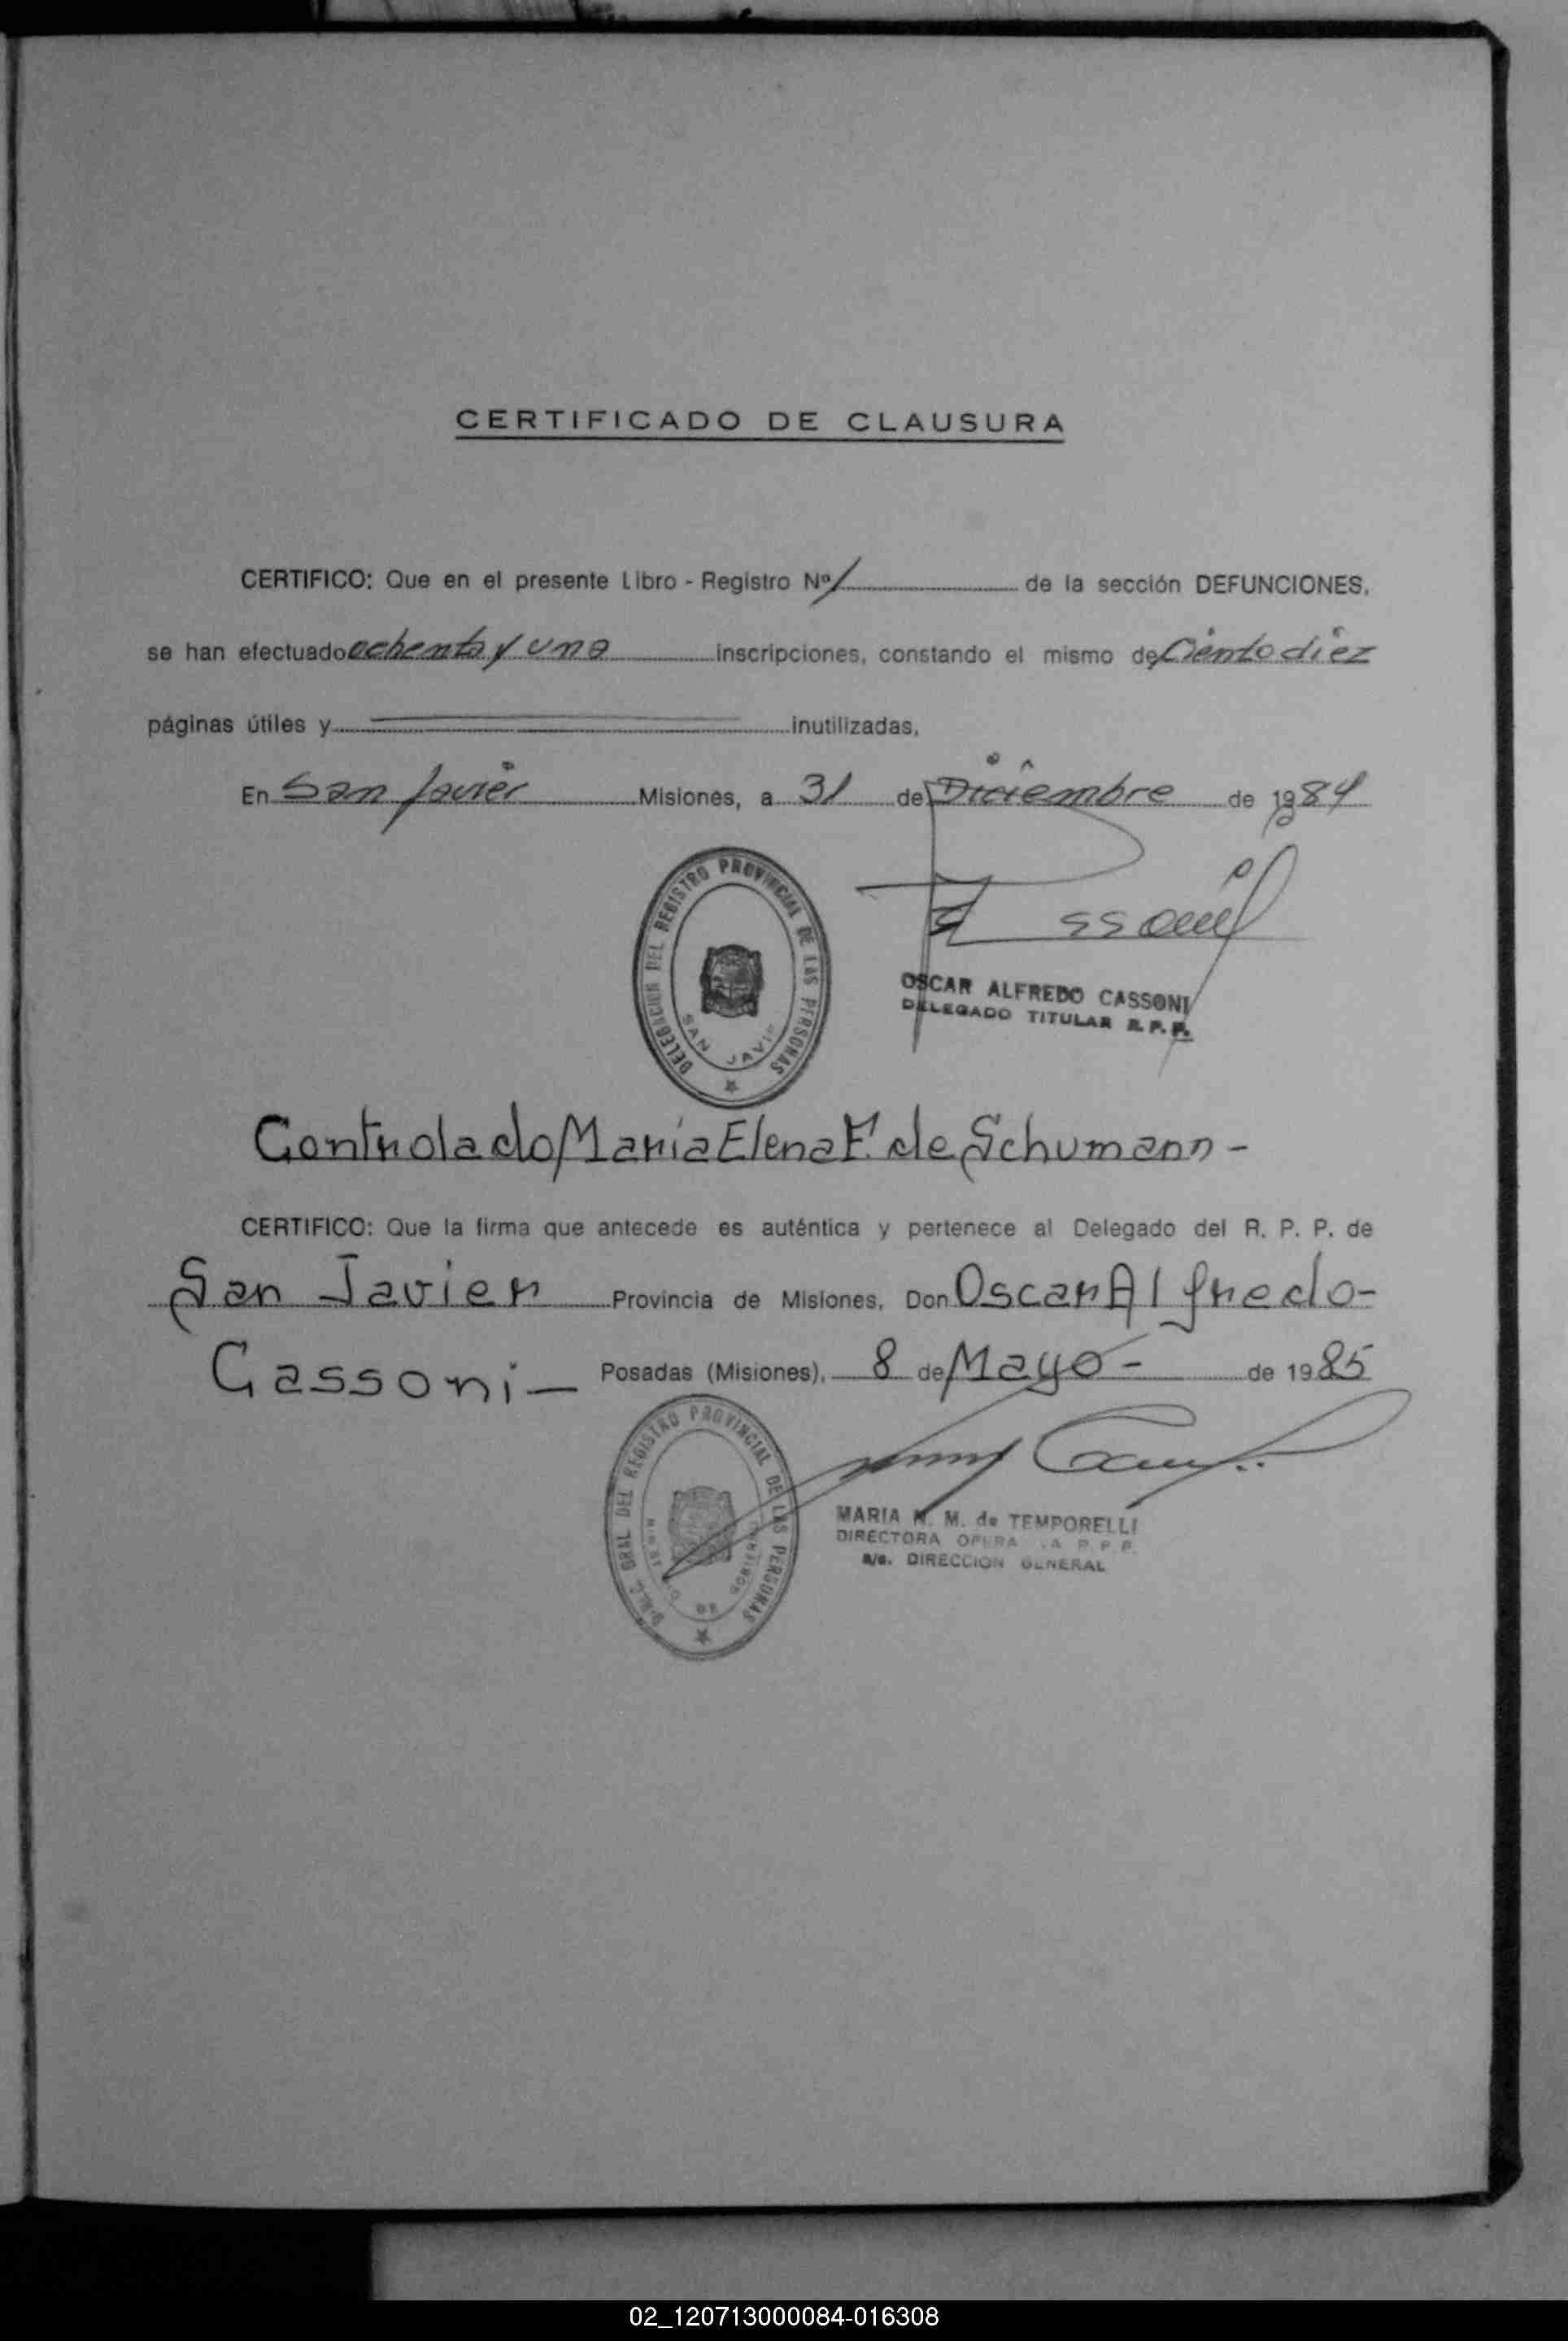 CERTIFICADO DE CLAUSURA
CERTIFICO: Que en el presente Libro - Registro Nº / de la sección DEFUNCIONES,
se han efectuado ochenta y una inscripciones, constando el mismo de Ciento diez
páginas útiles y inutilizadas.
En San Javier Misiones, a 31 de Diciembre de 1984
DELEGACION DEL REGISTRO PROVINCIAL DE LAS PERSONAS
SAN JAVIE
OSCAR ALFREDO CASSONI
DELEGADO TITULAR R. P. P.
Controlado Maria Elena F. de Schumann -
CERTIFICO: Que la firma que antecede es auténtica y pertenece al Delegado del R. P. P. de
San Javier Provincia de Misiones, Don Oscar Alfredo-
Cassoni - Posadas (Misiones), 8 de Mayo - de 1985
GRAL DEL REGISTRO PROVINCIAL DE LAS PERSONAS
DE
MARIA N. M. de TEMPORELLI
DIRECTORA R. P. P.
a/c. DIRECCION GENERAL
02_120713000084-016308